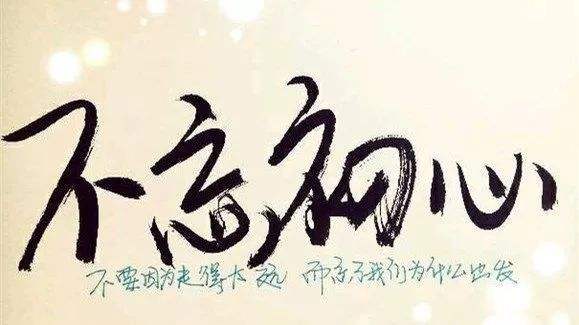 不忘初心
不要因为走得太远 而忘了我们为什么出发